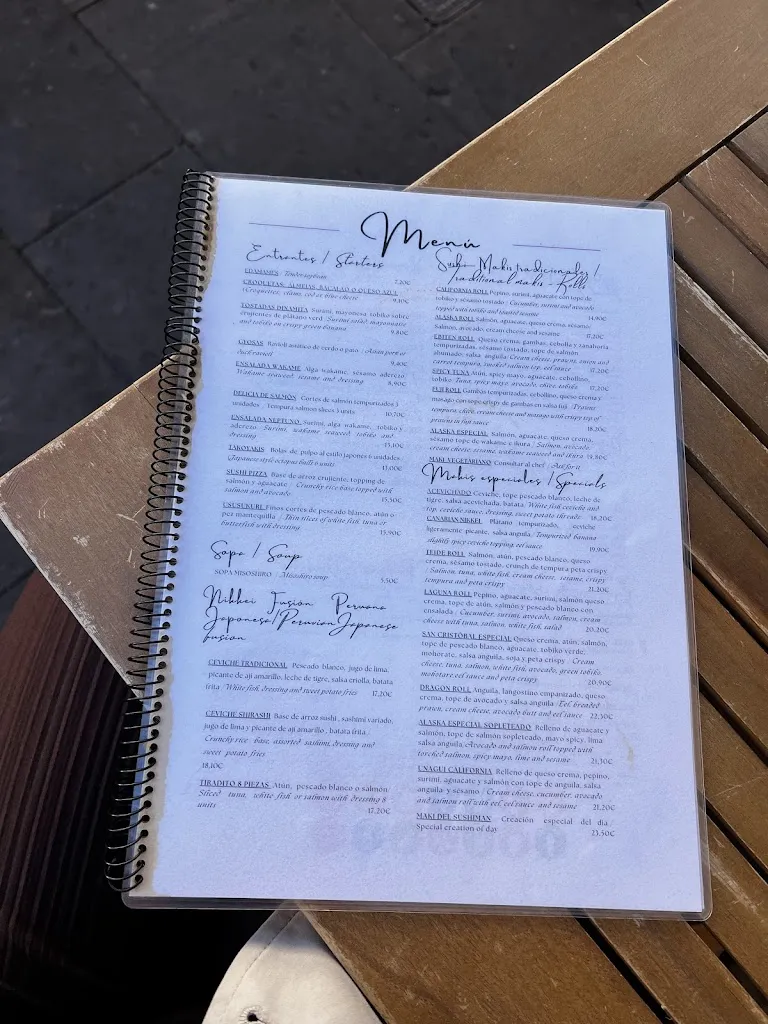 Menú
Entrantes / Starters
EDAMAMES / Tender soybean
7,20€
CROQUETAS: ALMEJAS, BACALAO O QUESO AZUL
Croquettes, clams, cod or blue cheese
9,10€
TOSTADAS DINAMITA Surimi, mayonesa, tobiko sobre
crujientes de plátano verd Surimi salad, mayonnaise
and tobiko on crispy green banana
9,80€
GYOSAS Ravioli asiático de cerdo o pato
9,40€
ENSALADA WAKAME Alga wakame, sésamo aderezo
Wakame seaweed, sesame and dressing
8,90€
DELICIA DE SALMÓN Cortes de salmón tempurizados 3
unidades / tempura salmon slices 3 units
10,70€
ENSALADA NEPTUNO Surimi, alga wakame, tobiko y
aderezo / Surimi, wakame seaweed, tobiko and
dressing
TAKOYAKIS Bolas de pulpo al estilo japones 6 unidades /
Japanese style octopus balls 6 units
SUSHI PIZZA Base de arroz crujiente, topping de
salmón y aguacate / Crunchy rice base topped with
salmon and avocado
USUSUKURI Finos cortes de pescado blanco, atún o
pez mantequilla / Thin slices of white fish, tuna or
butterfish with dressing
15,90€
Sopa / Soup
SOPA MISOSHIRO / Misoshiro soup
5,50€
Nikkei Fusión Peruana
Japonesa/Peruvian Japanese
fusion
CEVICHE TRADICIONAL Pescado blanco, jugo de lima,
picante de aji amarillo, leche de tigre, salsa criolla, batata
frita / White fish, dressing and sweet potato fries 17,20€
CEVICHE SHIRASHI Base de arroz sushi , sashimi variado,
jugo de lima y picante de aji amarillo , batata frita /
Crunchy rice base, assorted sashimi, dressing and
sweet potato fries
18,10€
TIRADITO 8 PIEZAS Atún, pescado blanco o salmón/
Sliced tuna, white fish or salmon with dressing 8
units
17,20€
Sushi- Makis tradicionales /
Traditional makis - Rolls
CALIFORNIA ROLL Pepino, surimi, aguacate con tope de
tobiko y sésamo tostado / Cucumber, surimi and avocado
topped with tobiko and toasted sesame
14,90€
ALASKA ROLL Salmón, aguacate, queso crema, sésamo
Salmon, avocado, cream cheese and sesame
17,20€
EBITEN ROLL Queso crema, gambas, cebolla y zanahoria
tempurizadas, sésamo tostado, tope de salmón
ahumado, salsa anguila Cream cheese, prawns, onion and
carrot tempura, smoked salmon top, eel sauce
17,20€
SPICY TUNA Atún, spicy mayo, aguacate, cebollino,
tobiko Tuna, spicy mayo, avocado, chive, tobiko
17,20€
FUJI ROLL Gambas tempurizadas, cebollino, queso crema y
masago con tope crispy de gambas en salsa fuji /Prawn
tempura, chive, cream cheese and masago with crispy top of
prawns in fuji sauce
18,20€
ALASKA ESPECIAL Salmón, aguacate, queso crema,
sésamo tope de wakame e ikura / Salmon, avocado,
cream cheese, sesame, wakame seaweed and ikura 19,80€
MAKI VEGETARIANO Consultar al chef / Ask for it
Makis especiales /Specials
ACEVICHADO Ceviche, tope pescado blanco, leche de
tigre, salsa acevichada, batata White fish ceviche and
top, ceviche sauce, dressing, sweet potato threads 18,20€
CANARIAN NIKKEI Plátano tempurizado, ceviche
ligeramente picante, salsa anguila / Tempurized banana
slightly spicy ceviche topping, eel sauce
19,90€
TEIDE ROLL Salmón, atún, pescado blanco, queso
crema, sésamo tostado, crunch de tempura peta crispy
/ Salmon, tuna, white fish, cream cheese, sesame, crispy
tempura and peta crispy
21,20€
LAGUNA ROLL Pepino, aguacate, surimi, salmón queso
crema, tope de atún, salmón y pescado blanco con
ensalada / Cucumber, surimi, avocado, salmon, cream
cheese with tuna, salmon, white fish, salad
20,20€
SAN CRISTÓBAL ESPECIAL Queso crema, atún, salmón,
tope de pescado blanco, aguacate, tobiko verde,
mohorate, salsa anguila, soja y peta crispy / Cream
cheese, tuna, salmon, white fish, avocado, green tobiko,
mohotare eel sauce and peta crispy
20,90€
DRAGON ROLL Anguila, langostino empanizado, queso
crema, tope de aguacate y salsa anguila / Eel, breaded
prawn, cream cheese, avocado butt and eel sauce 22,30€
ALASKA ESPECIAL SOPLETEADO Relleno de aguacate y
salmón, tope de salmón sopleteado, mayo spicy, lima
salsa anguila /Avocado and salmon roll topped with
torched salmon, spicy mayo, lime and sesame
21,30€
UNAGUI CALIFORNIA Relleno de queso crema, pepino,
surimi, aguacate y salmón con tope de anguila, salsa
anguila y sésamo / Cream cheese, cucumber, avocado
and salmon roll with eel, eel sauce and sesame
21,20€
MAKI DEL SUSHIMAN Creación especial del día /
Special creation of day
23,50€